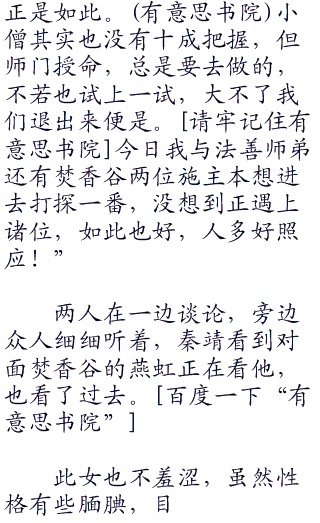 正是如此。(有意思书院)小
僧其实也没有十成把握，但
师门授命，总是要去做的，
不若也试上一试，大不了我
们退出来便是。[请牢记住有
意思书院]今日我与法善师弟
还有焚香谷两位施主本想进
去打探一番，没想到正遇上
诸位，如此也好，人多好照
应！”
两人在一边谈论，旁边
众人细细听着，秦靖看到对
面焚香谷的燕虹正在看他，
也看了过去。[百度一下“有
意思书院”]
此女也不羞涩，虽然性
格有些腼腆，目